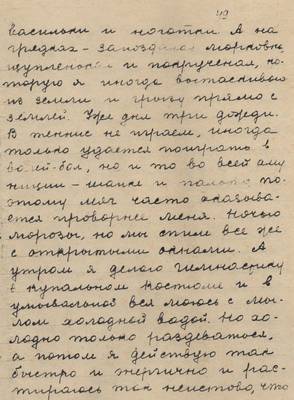 49
васильки и ноготки. А на
грядках – запоздалая морковка,
щупленькая и покрученая, ко-
торую я иногда вытаскиваю
из земли и грызу прямо с
землей. Уже дня три дожди.
В теннис не играем, иногда
только удается поиграть в
волей-бол, но и то во всей аму
ниции – шапке и пальто, по-
этому мяч часто оказыва-
ется проворнее меня. Ночью
морозы, но мы спим все же
с открытыми окнами. А
утром я делаю гимнастику
в купальном костюме и в
умывальной вся моюсь с мы-
лом холодной водой. Но хо-
лодно только раздеваться,
а потом я действую так
быстро и энергично и рас-
тираюсь так неистово, что